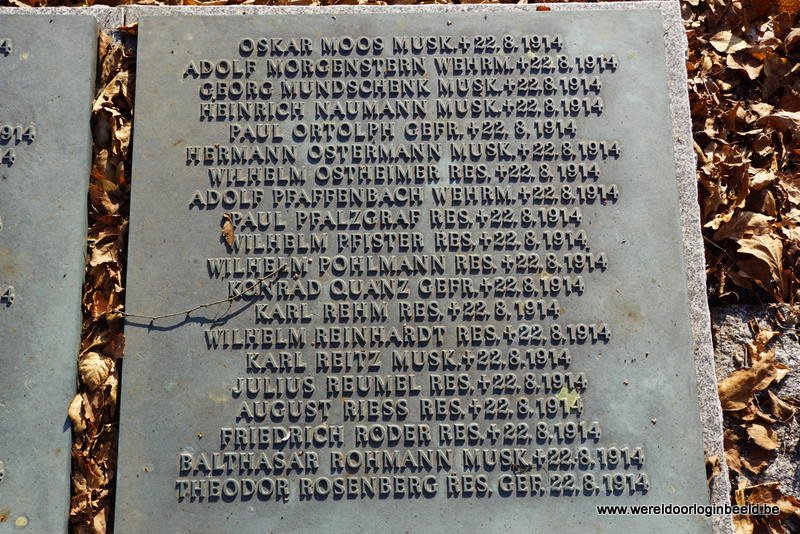 OSKAR MOOS MUSK.+22.8.1914
ADOLF MORGENSTERN WEHRM.+22.8.1914
GEORG MUNDSCHENK MUSK.+22.8.1914
HEINRICH NAUMANN MUSK.+22.8.1914
PAUL ORTOLPH GEFR.+22.8.1914
HERMANN OSTERMANN MUSK.+22.8.1914
WILHELM OSTHEIMER RES.+22.8.1914
ADOLF PFAFFENBACH WEHRM.+22.8.1914
PAUL PFALZGRAF RES.+22.8.1914
WILHELM PFISTER RES.+22.8.1914
WILHELM POHLMANN RES.+22.8.1914
KONRAD QUANZ GEFR.+22.8.1914
KARL REHM RES.+22.8.1914
WILHELM REINHARDT RES.+22.8.1914
KARL REITZ MUSK.+22.8.1914
JULIUS REUMEL RES.+22.8.1914
AUGUST RIESS RES.+22.8.1914
FRIEDRICH RODER RES.+22.8.1914
BALTHASAR ROHMANN MUSK.+22.8.1914
THEODOR ROSENBERG RES. GEF. 22.8.1914
www.wereldoorloginbeeld.be